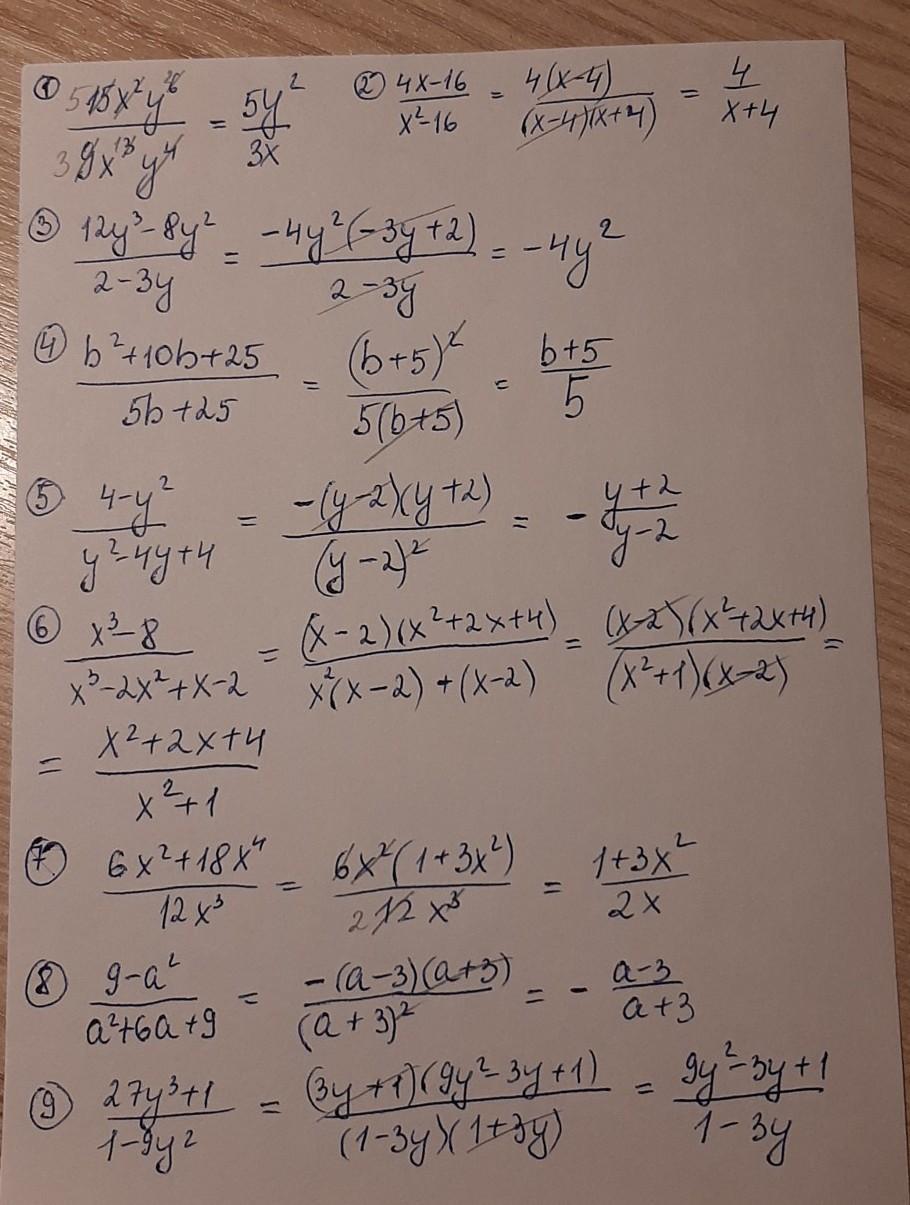 ① 5 15x²y⁶ / 3 9x³y⁴ = 5y² / 3x ② 4x-16 / x²-16 = 4(x-4) / (x-4)(x+4) = 4 / x+4
③ 12y³-8y² / 2-3y = -4y²(-3y+2) / 2-3y = -4y²
④ b²+10b+25 / 5b+25 = (b+5)² / 5(b+5) = b+5 / 5
⑤ 4-y² / y²-4y+4 = -(y-2)(y+2) / (y-2)² = - y+2 / y-2
⑥ x³-8 / x³-2x²+x-2 = (x-2)(x²+2x+4) / x²(x-2)+(x-2) = (x-2)(x²+2x+4) / (x²+1)(x-2) =
= x²+2x+4 / x²+1
⑦ 6x²+18x⁴ / 12x³ = 6x²(1+3x²) / 2 12x³ = 1+3x² / 2x
⑧ 9-a² / a²+6a+9 = -(a-3)(a+3) / (a+3)² = - a-3 / a+3
⑨ 27y³+1 / 1-9y² = (3y+1)(9y²-3y+1) / (1-3y)(1+3y) = 9y²-3y+1 / 1-3y